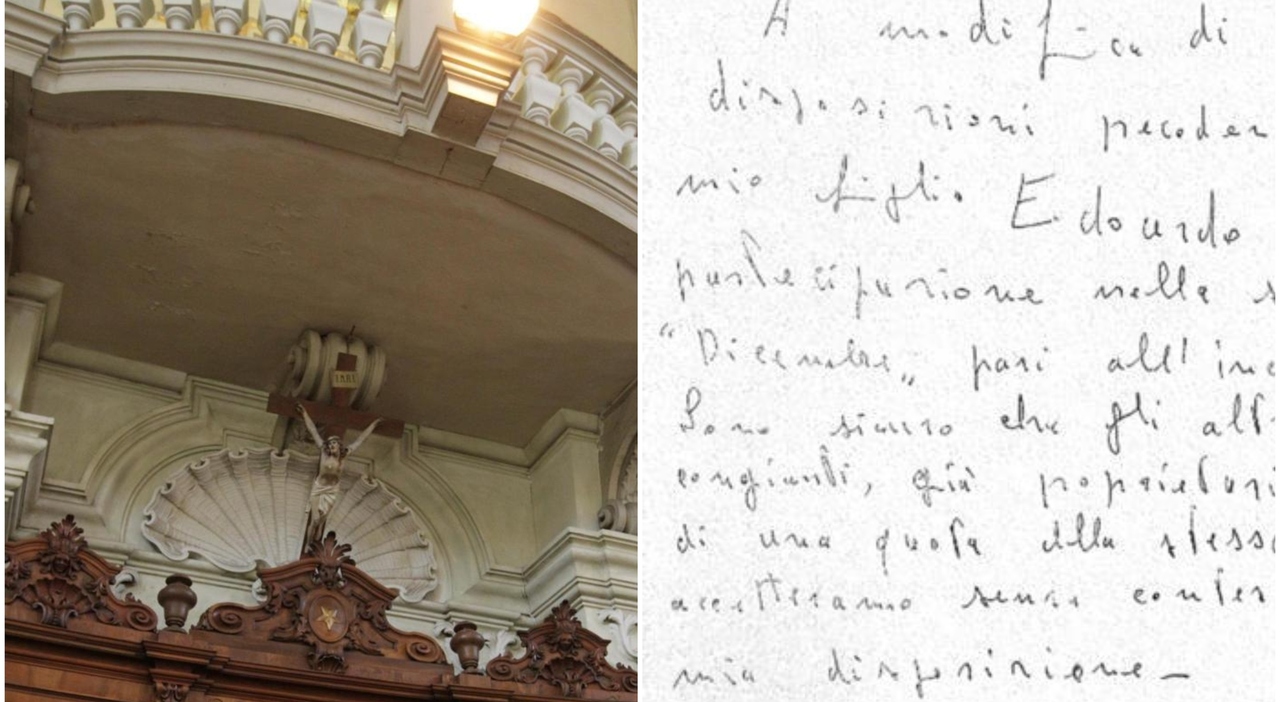 INRI
A modifica di
disposizioni precedenti
mio figlio Edoardo
partecipazione nella s
"Dicembre„ pari all' inc
Sono sicuro che gli alt
congiunti, già proprietari
di una quota della stessa
accetteranno senza contes
mia disposizione –